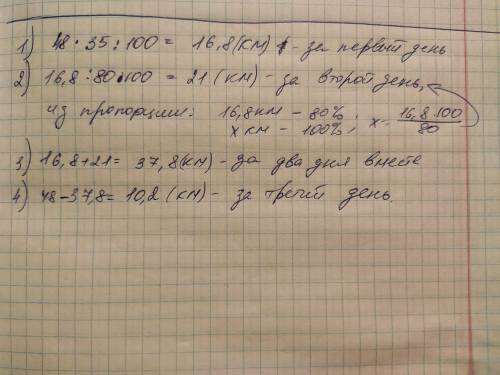 1) 48 · 35 : 100 = 16,8 (км) - за первый день
2) 16,8 : 80 · 100 = 21 (км) - за второй день,
из пропорции: 16,8 км - 80% ; x = 16,8·100 / 80
x км - 100%
3) 16,8 + 21 = 37,8 (км) - за два дня вместе
4) 48 - 37,8 = 10,2 (км) - за третий день.